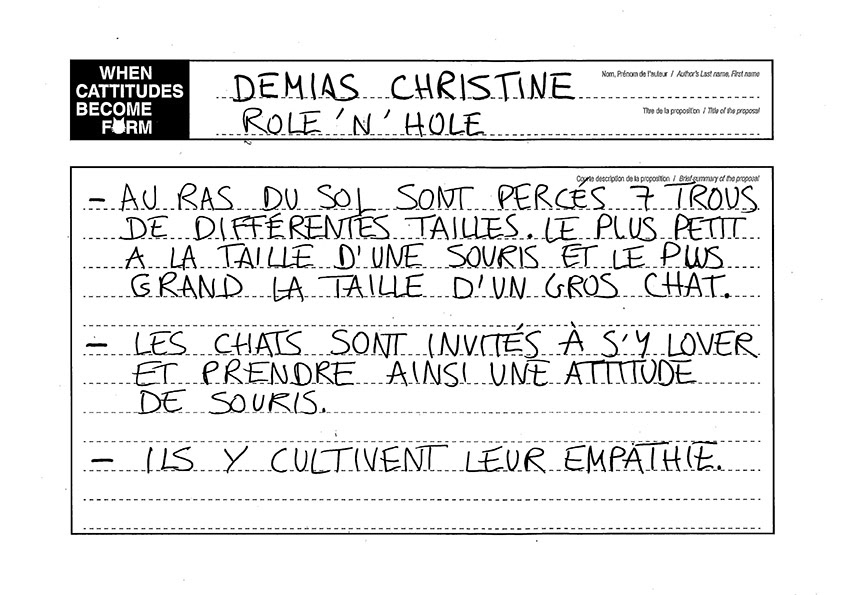 WHEN
CATTITUDES
BECOME
FORM
Nom, Prénom de l'auteur / Author's Last name, First name
DEMIAS CHRISTINE
Titre de la proposition / Title of the proposal
ROLE 'N' HOLE
Courte description de la proposition / Brief summary of the proposal
– AU RAS DU SOL SONT PERCÉS 7 TROUS
DE DIFFÉRENTES TAILLES. LE PLUS PETIT
A LA TAILLE D'UNE SOURIS ET LE PLUS
GRAND LA TAILLE D'UN GROS CHAT.
– LES CHATS SONT INVITÉS À S'Y LOVER
ET PRENDRE AINSI UNE ATTITUDE
DE SOURIS.
– ILS Y CULTIVENT LEUR EMPATHIE.